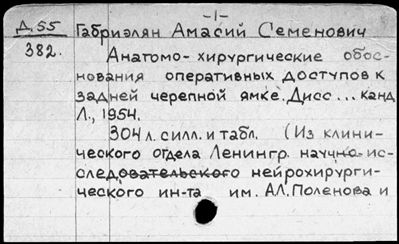 -1-
Д.55 Габриэлян Амасий Семенович
382.
Анатомо-хирургические обос-
нования оперативных доступов к
задней черепной ямке. Дисс... канд
Л., 1954.
304 л. с илл. и табл. (Из клини-
ческого отдела Ленингр. научно-ис-
следовательского нейрохирурги-
ческого ин-та им. А.Л. Поленова и